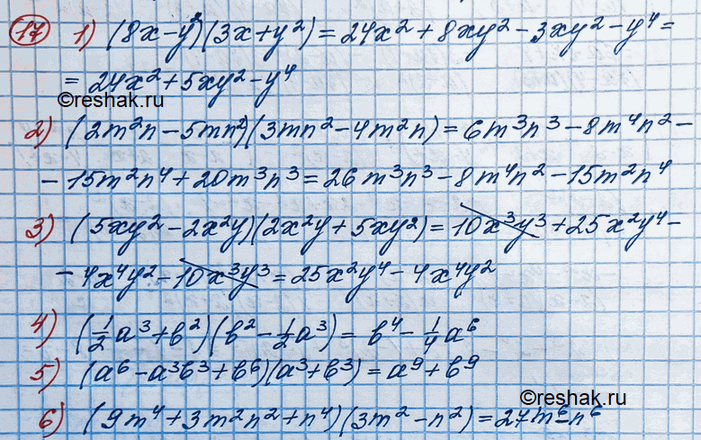 17 1) (8x-y²)(3x+y²)=24x²+8xy²-3xy²-y⁴=
=24x²+5xy²-y⁴
©reshak.ru
2) (2m²n-5mn²)(3mn²-4m²n)=6m³n³-8m⁴n²-
-15m²n⁴+20m³n³=26m³n³-8m⁴n²-15m²n⁴
3) (5xy²-2x²y)(2x²y+5xy²)=10x³y³+25x²y⁴-
-4x⁴y²-10x³y³=25x²y⁴-4x⁴y²
4) (1/2a³+b²)(b²-1/2a³)=b⁴-1/4a⁶
5) (a⁶-a³b³+b⁶)(a³+b³)=a⁹+b⁹
©reshak.ru
6) (9m⁴+3m²n²+n⁴)(3m²-n²)=27m⁶-n⁶